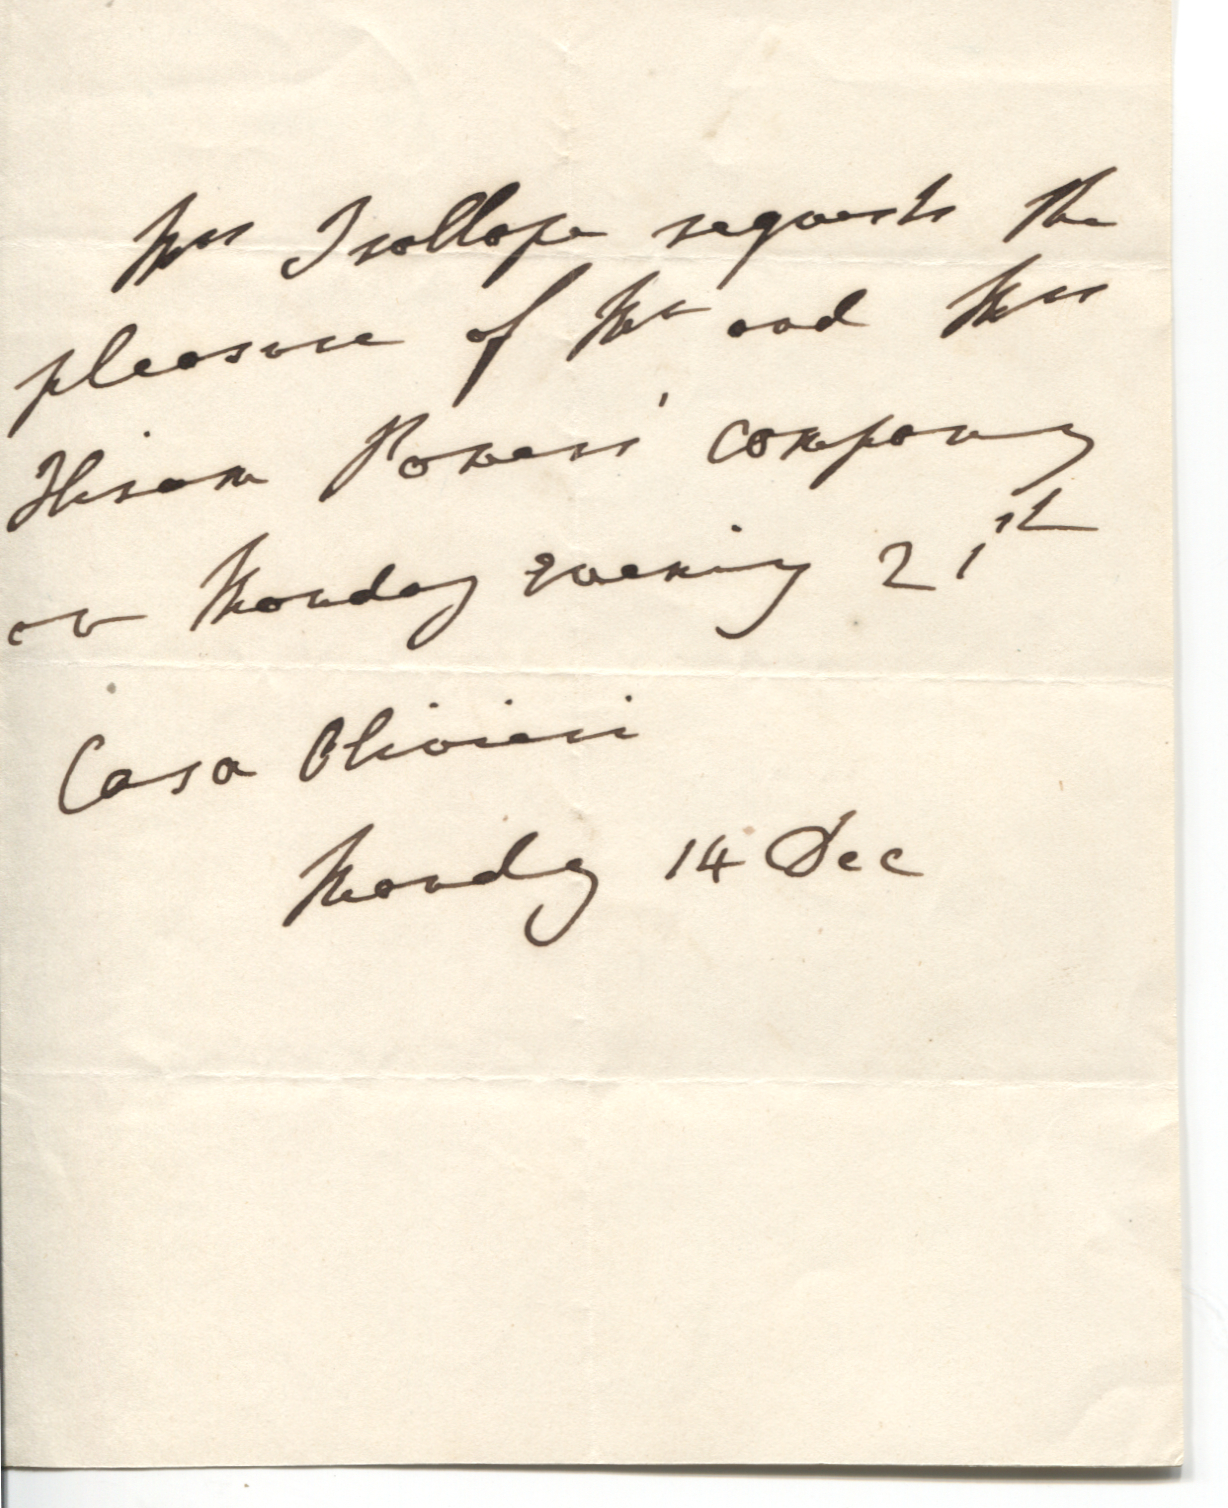 Mrs Trollope requests the
pleasure of Mr and Mrs
Hiram Powers' company
on Monday Evening 21st
Casa Olivieri
Monday 14 Dec